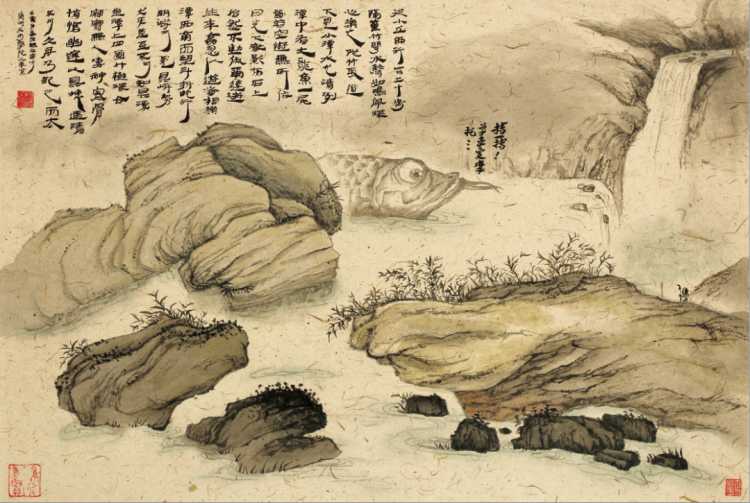 從小丘西行一百二十步
隔篁竹聞水聲如鳴佩環
心樂之伐竹取道
下見小潭水尤清冽
潭中有大龍魚一尾
皆若空遊無所依
日光下澈影布石上
佁然不動俶爾遠逝
往來翕忽似與遊者相樂
潭西南而望斗折蛇行
明滅可見其岸勢
犬牙差互不可知其源
坐潭上四面竹樹環合
寂寥無人凄神寒骨
悄愴幽邃以其境過清
不可久居乃記之而去